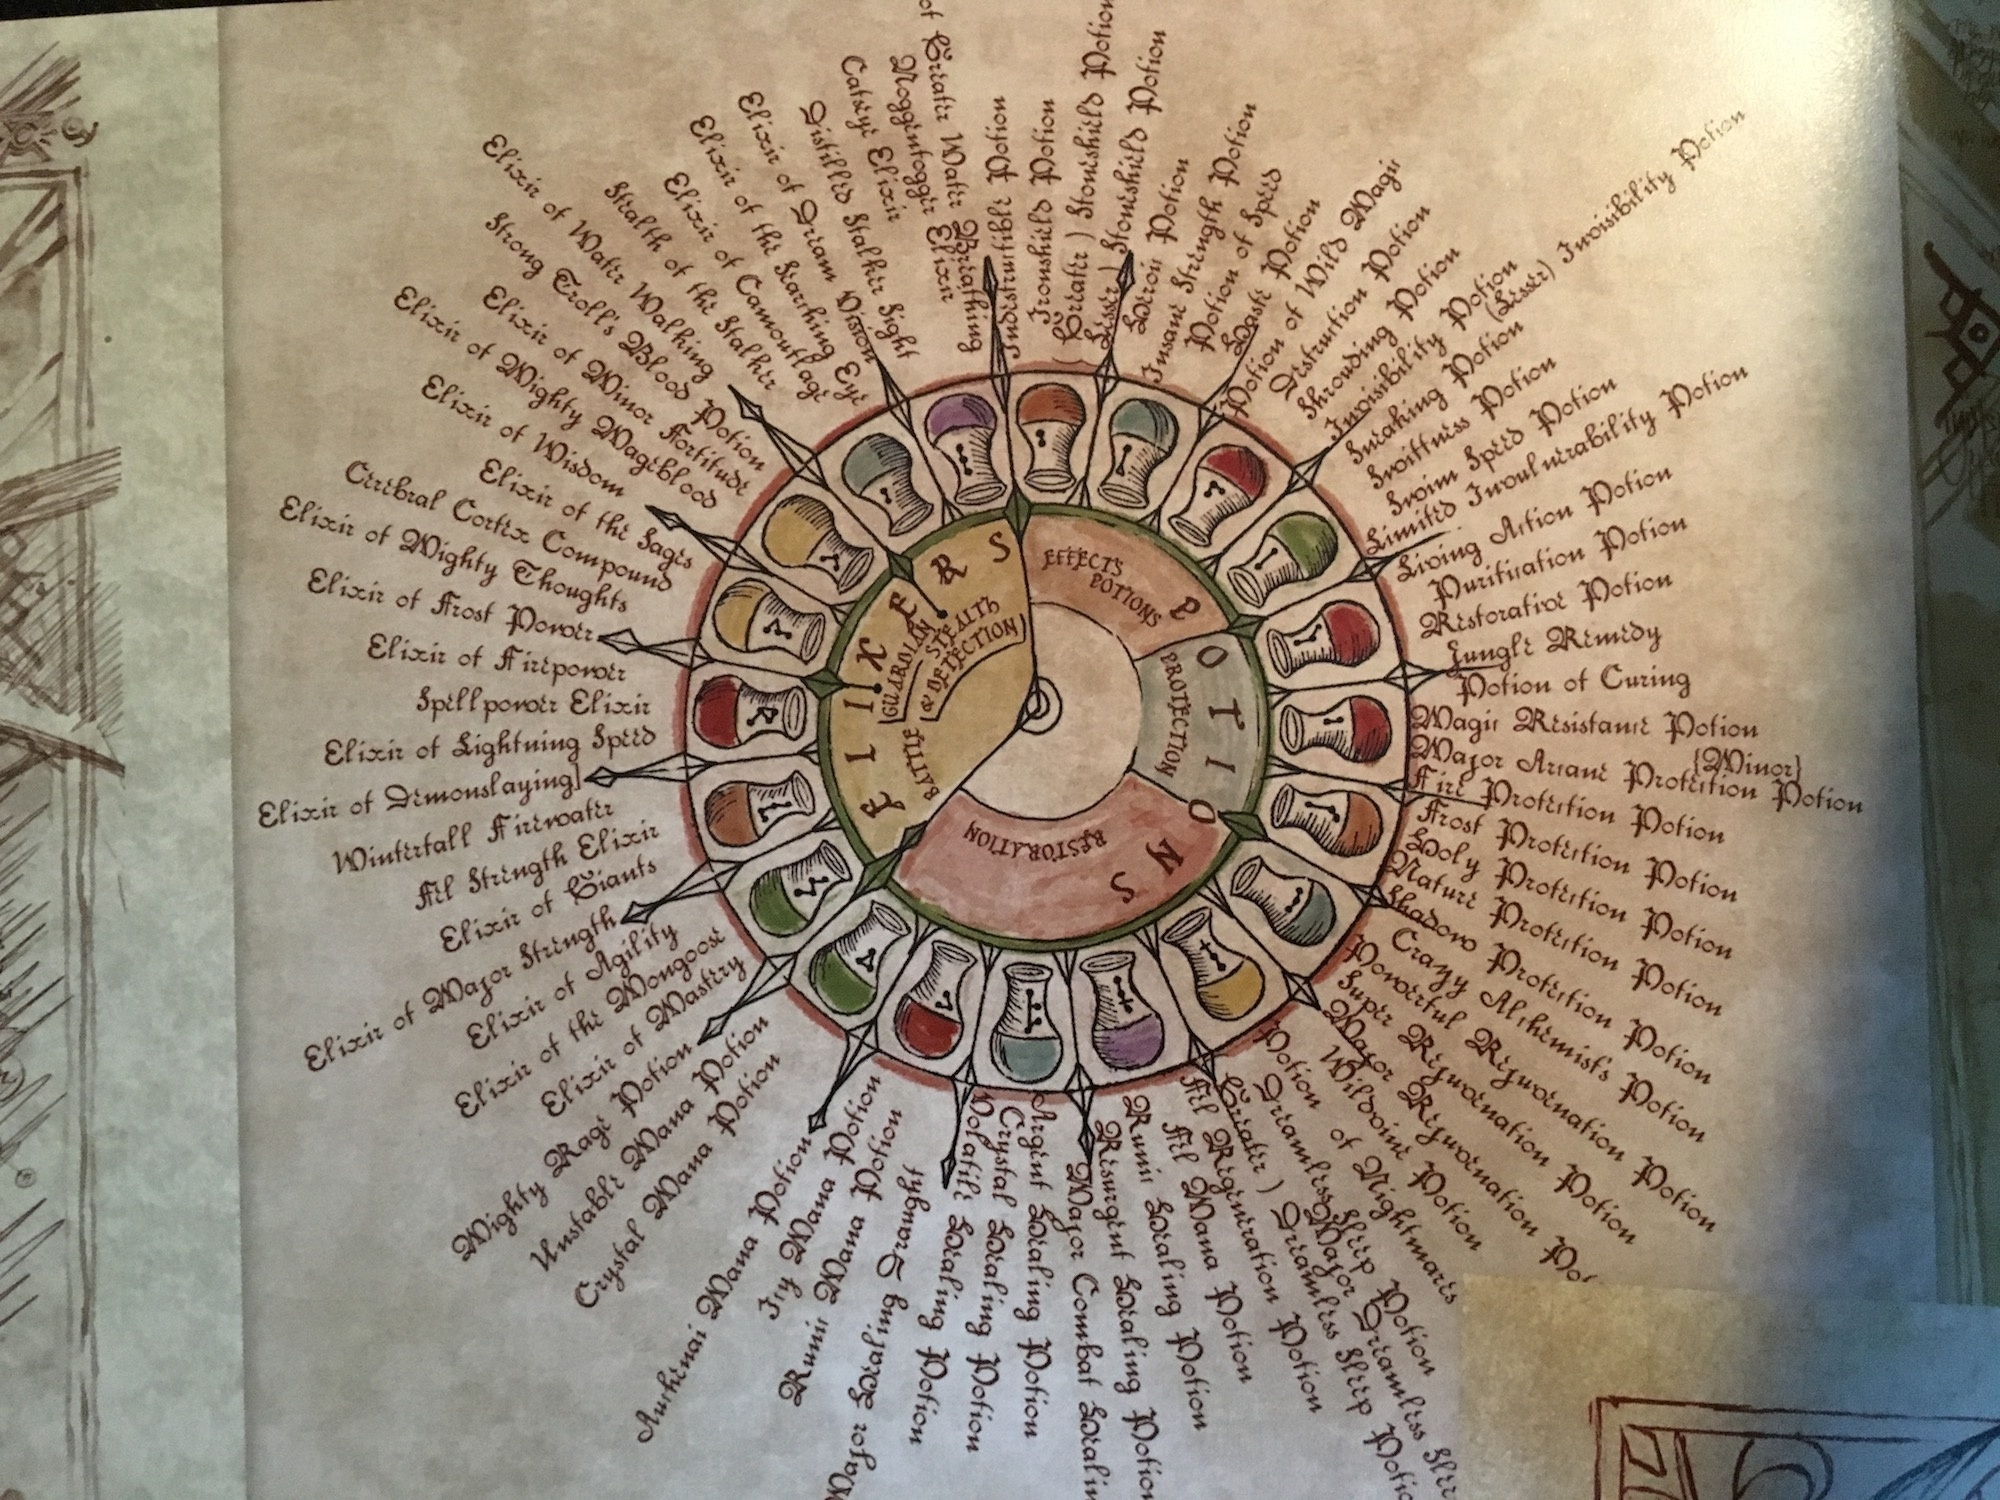 ELIXERS
GUARDIAN
STEALTH
& DETECTION
BATTLE
POTIONS
EFFECTS
POTIONS
PROTECTION
RESTORATION
Indestructible Potion
Ironshield Potion
(Greater) Stoneshield Potion
(Lesser) Stoneshield Potion
Heroic Potion
Insane Strength Potion
Potion of Speed
Haste Potion
Potion of Wild Magic
Destruction Potion
Shrouding Potion
Invisibility Potion
(Lesser) Invisibility Potion
Sneaking Potion
Swiftness Potion
Swim Speed Potion
Limited Invulnerability Potion
Living Action Potion
Purification Potion
Restorative Potion
Jungle Remedy
Potion of Curing
Magic Resistance Potion
{Minor}
Major Arcane Protection Potion
Fire Protection Potion
Frost Protection Potion
Holy Protection Potion
Nature Protection Potion
Shadow Protection Potion
Crazy Alchemist's Potion
Powerful Rejuvenation Potion
Super Rejuvenation Potion
Major Rejuvenation
Wildvine Potion
Potion of Nightmares
Dreamless Sleep Potion
Major Dreamless
(Greater) Dreamless Sleep
Fel Regeneration Potion
Fel Mana Potion
Runic Healing Potion
Resurgent Healing Potion
Major Combat
Argent Healing Potion
Crystal Healing Potion
Volatile Healing Potion
Major Healing Draught
Runic Mana Potion
Icy Mana Potion
Auchenai Mana Potion
Crystal Mana Potion
Unstable Mana Potion
Mighty Rage Potion
Elixir of Mastery
Elixir of the Mongoose
Elixir of Agility
Elixir of Major Strength
Elixir of Giants
Fel Strength Elixir
Winterfall Firewater
Elixir of Demonslaying]
Elixir of Lightning Speed
Spellpower Elixir
Elixir of Firepower
Elixir of Frost Power
Elixir of Mighty Thoughts
Cerebral Cortex Compound
Elixir of the Sages
Elixir of Wisdom
Elixir of Mighty Mageblood
Elixir of Minor Fortitude
Strong Troll's Blood Potion
Elixir of Water Walking
Stealth of the Stalker
Elixir of Camouflage
Elixir of the Searching Eye
Elixir of Dream Vision
Distilled Stalker Sight
Catseye Elixir
Noggenfogger Elixir
of Greater Water Breathing